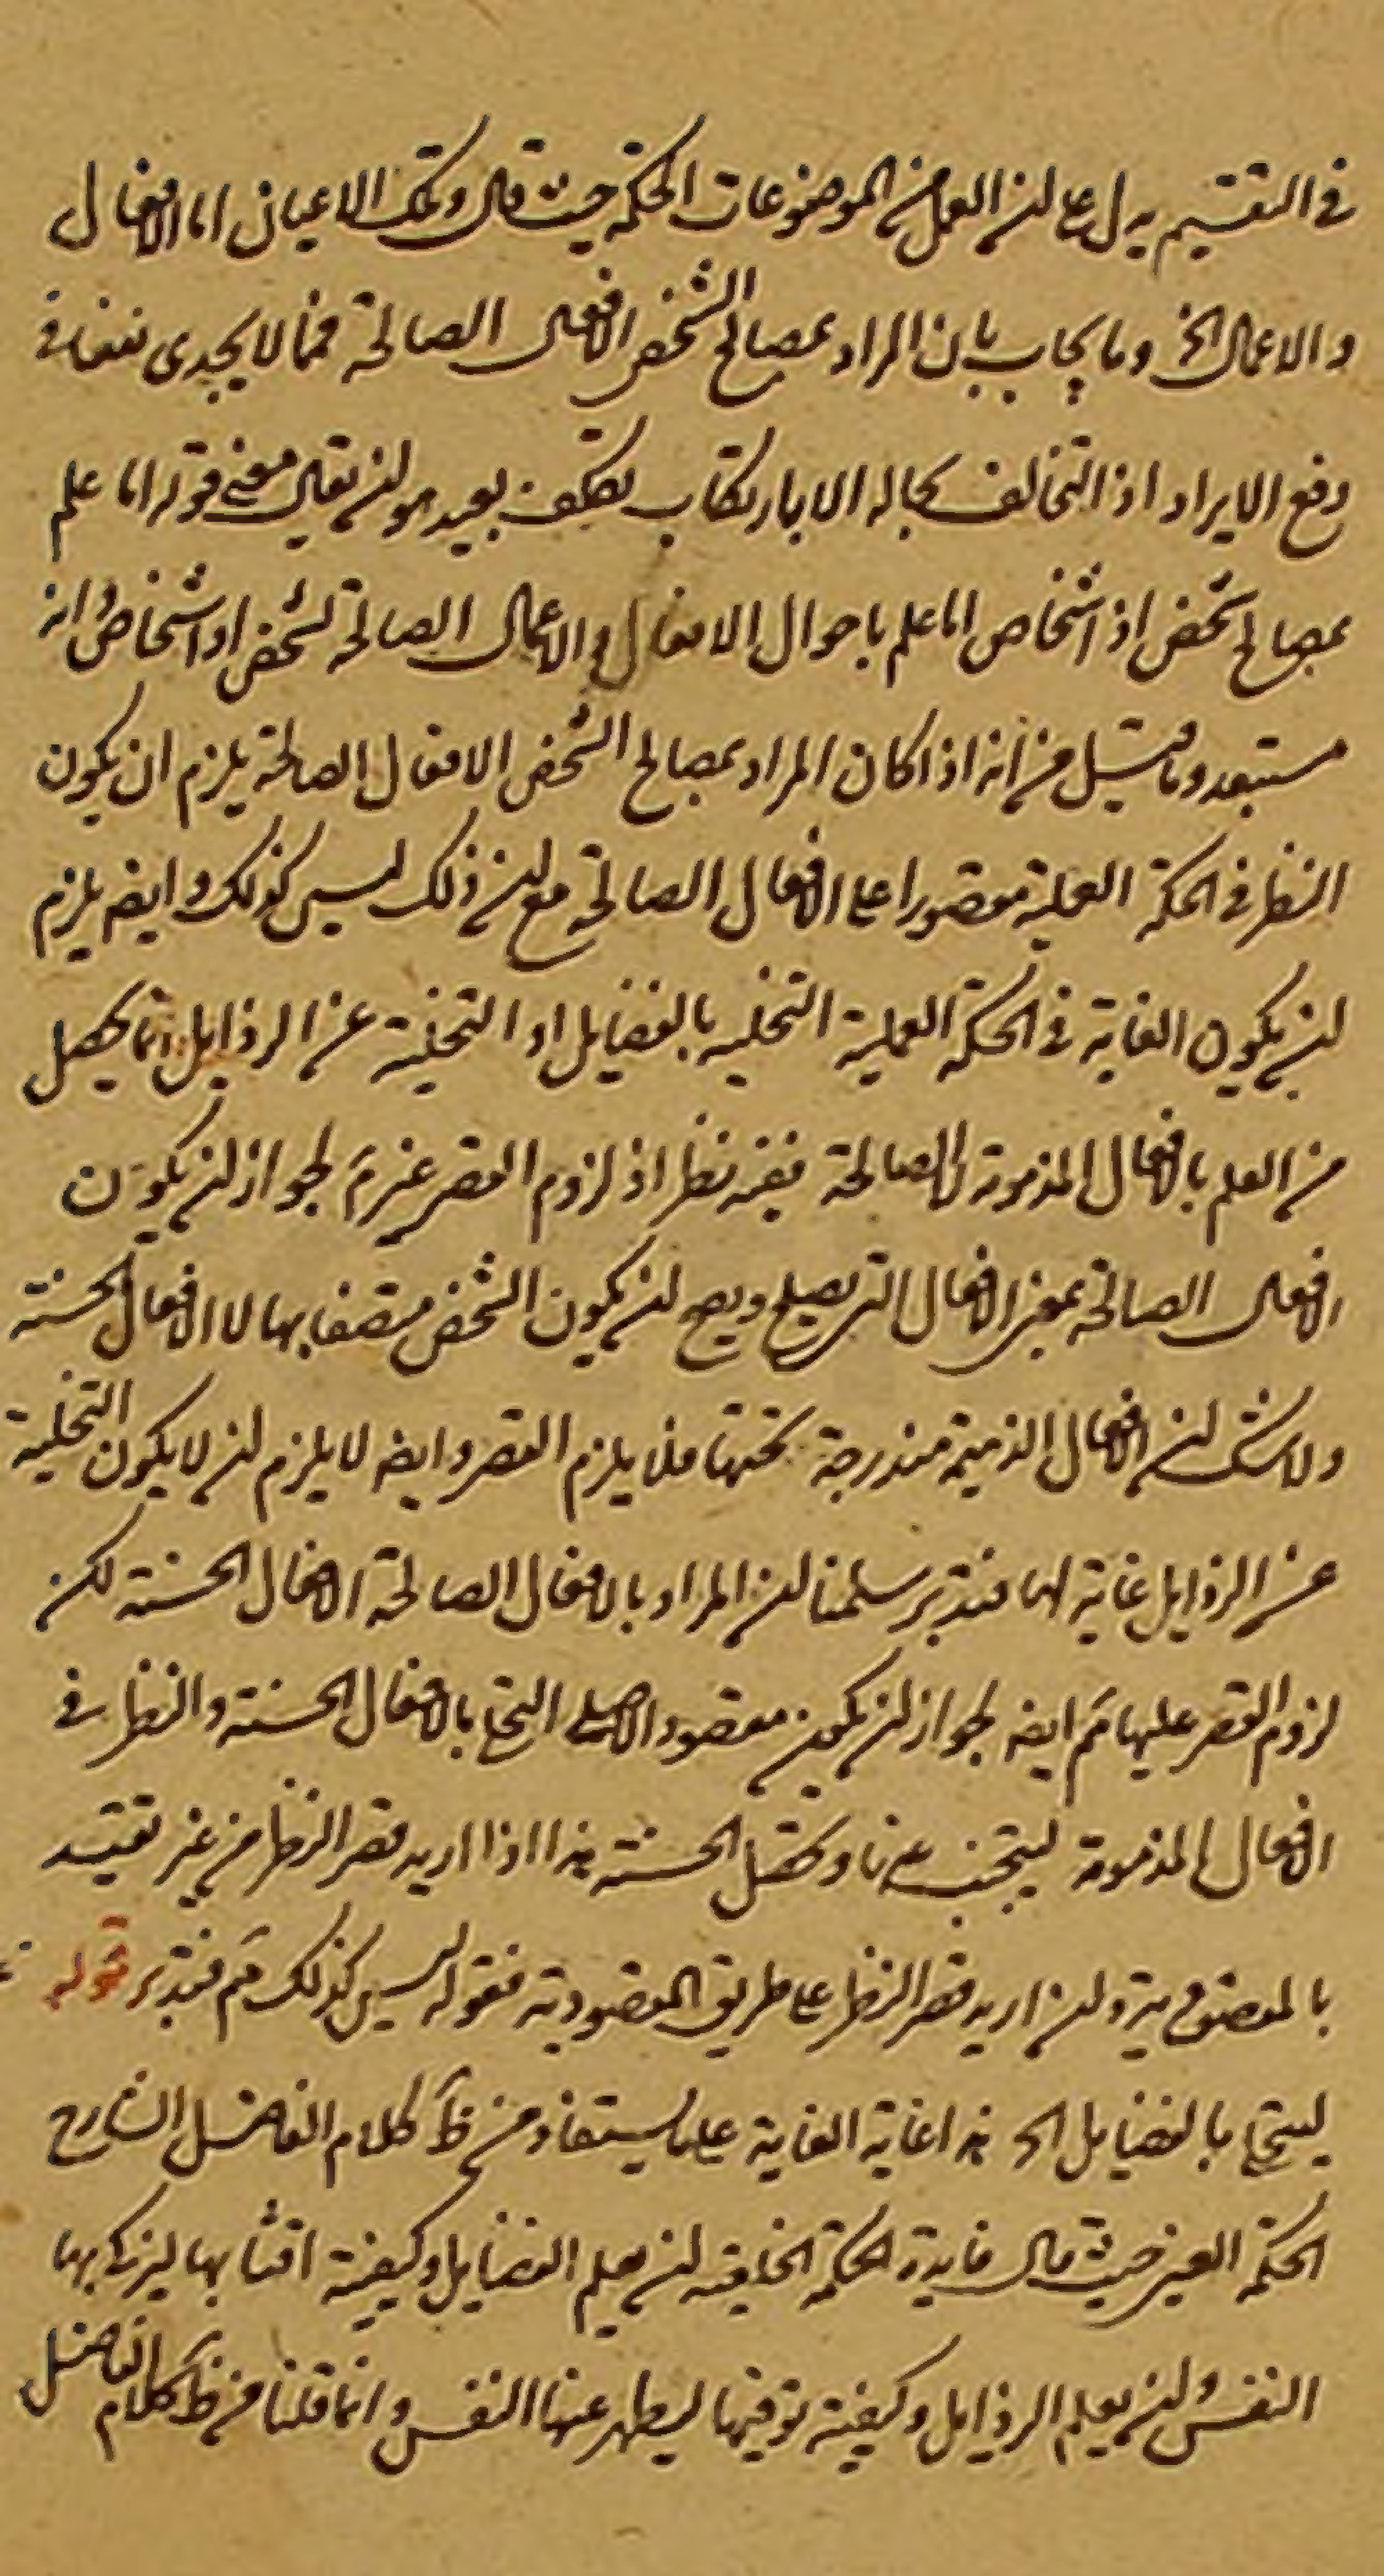 في التقسيم يدل على ان العمل من الموضوعات الحكمة حيث قال وتلك الاعيان اما الافعال
والاعمال الخ وما يجاب بان المراد بمصالح الشخص الافعال الصالحة فمما لا يجدى نفعا في
دفع الايراد اذ التخالف بحاله الا بارتكاب تكلف بعيد هو ان يقال معنى قوله اما علم
بمصالح شخص او اشخاص اما علم باحوال الافعال والاعمال الصالحة لشخص او اشخاص وانه
مستبعد وما قيل من انه اذا كان المراد بمصالح الشخص الافعال الصالحة يلزم ان يكون
النظر في الحكمة العملية مقصورا على الافعال الصالحة مع ان ذلك ليس كذلك وايضه يلزم
ان يكون الغاية في الحكمة العملية التحلية بالفضايل اذ التخلية عن الرذايل انما يحصل
من العلم بالافعال المذمومة لا الصالحة ففيه نظر اذ لزوم القصر غير مَم لجواز ان يكون
الافعال الصالحة بمعنى الافعال التى يصلح ويصح ان يكون الشخص متصفا بها لا الافعال الحسنة
ولا شك ان الافعال الذميمة مندرجة تحتها فلا يلزم القصر وايضه لا يلزم ان لا يكون التخلية
عن الرذايل غاية لها فتدبر سلمنا ان المراد بالافعال الصالحة الافعال الحسنة لكن
لزوم القصر عليها مَم ايضه لجواز ان يكون مقصود الاصلى التحلى بالافعال الحسنة والنظر في
الافعال المذمومة ليتجنب عنها وتحصل الحسنة هذا اذا اريد قصر النظر من غير تقييد
بالمقصودية وان اريد قصر النظر على طريق المقصودية فقوله ليس كذلك مَم فتدبر قوله
ليتحلى بالفضايل الخ هذا غاية الغاية على ما يستفاد من ظَ كلام الفاضل الشارح
الحكمة العين حيث قال فايدة الحكمة الخلقية ان يعلم الفضايل وكيفية اقتنائها ليزكو بها
النفس وان يعلم الرذايل وكيفية توقيها ليطهر عنها النفس وانما قلنا من ظَ كلام الفاضل